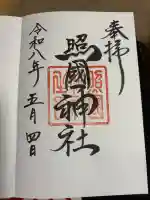 奉拝
照國神社
令和八年
五月四日